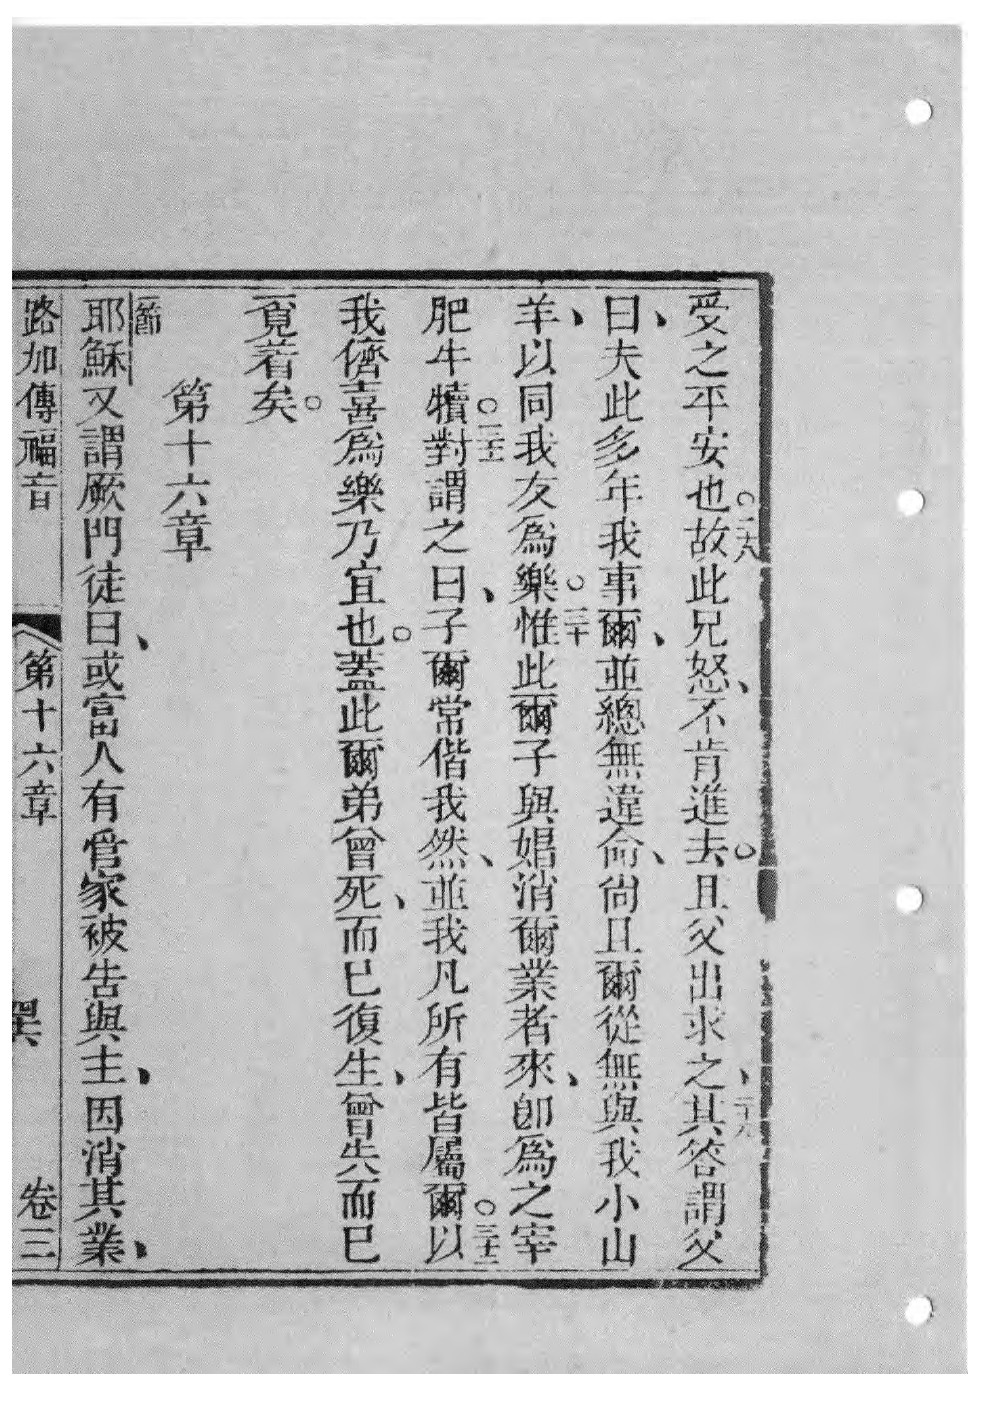 受之平安也○二十八故此兄怒、不肯進去○且父出求之、二十九其答謂父
曰、夫此多年我事爾、並總無違命、尚且爾從無與我小山
羊、以同我友爲樂○三十惟此爾子與娼消爾業者來、卽爲之宰
肥牛犢○三十一對謂之曰、子爾常偕我然、並我凡所有皆屬爾○三十二以
我儕喜爲樂乃宜也○蓋此爾弟曾死、而已復生、曾失而已
覔着矣○
第十六章
一節耶穌又謂厥門徒曰、或富人有管家被告與主、因消其業、
路加傳福音 第十六章 卷三